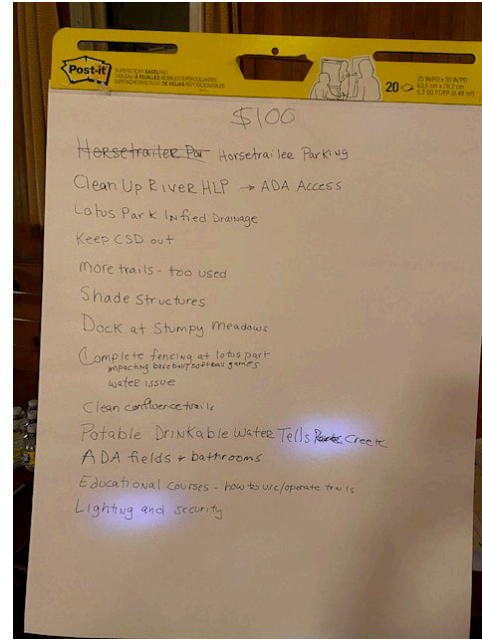 Post-it
SUPER STICKY EASEL PAD
20
25 IN/PO x 30 IN/PO
63,5 cm x 76,2 cm
5.2 SQ FT/PI² (0,48 m²)
$100
Horsetrailer Par Horsetrailer Parking
Clean Up River HLP → ADA Access
Lotus Park Infied Drainage
Keep CSD out
more trails - too used
Shade Structures
Dock at Stumpy Meadows
Complete fencing at lotus part
impacting baseball/softball games
water issue
Clean confluence trails
Potable Drinkable Water Tells Creek
ADA fields + bathrooms
Educational courses - how to use/operate trails
Lighting and security